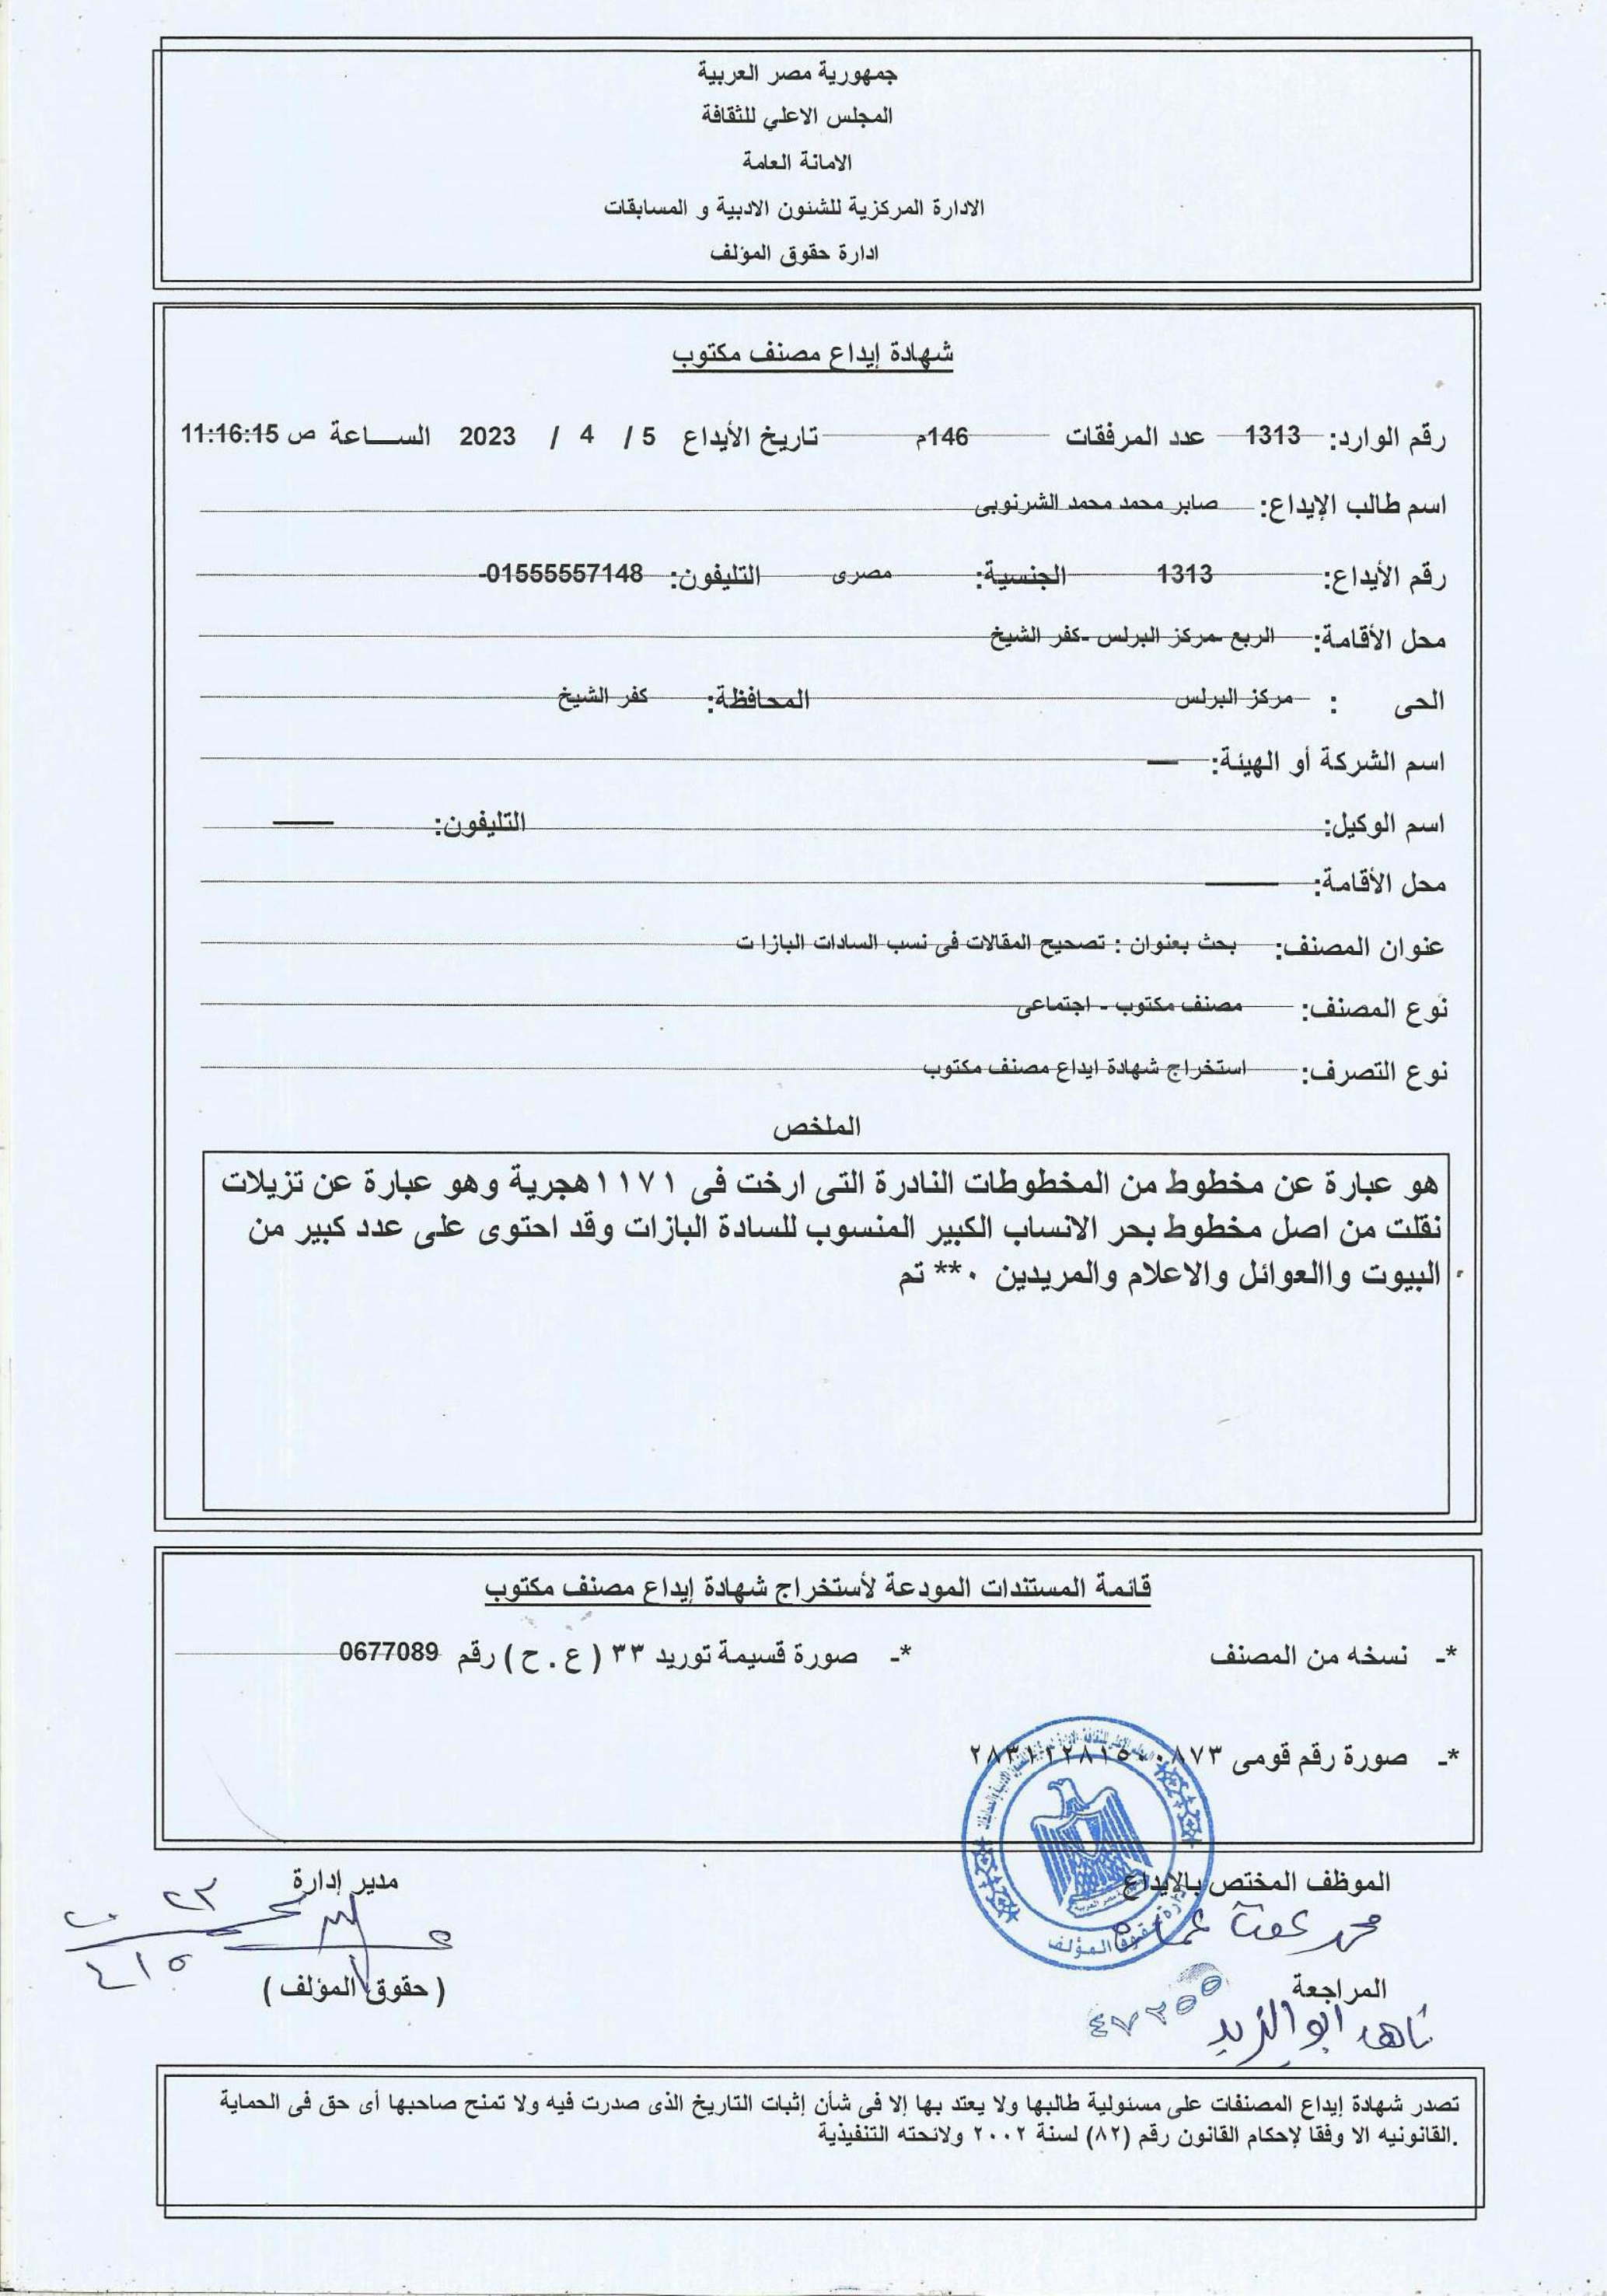 جمهورية مصر العربية
المجلس الاعلي للثقافة
الامانة العامة
الادارة المركزية للشئون الادبية و المسابقات
ادارة حقوق المؤلف
شهادة إيداع مصنف مكتوب
رقم الوارد: 1313 عدد المرفقات 146م تاريخ الأيداع 5 / 4 / 2023 الســـاعة ص 11:16:15
اسم طالب الإيداع: صابر محمد محمد الشرنوبى
رقم الأيداع: 1313 الجنسية: مصرى التليفون: 01555557148-
محل الأقامة: الربع -مركز البرلس -كفر الشيخ
الحى : مركز البرلس المحافظة: كفر الشيخ
اسم الشركة أو الهيئة: —
اسم الوكيل: التليفون: —
محل الأقامة: —
عنوان المصنف: بحث بعنوان : تصحيح المقالات فى نسب السادات البازا ت
نوع المصنف: مصنف مكتوب - اجتماعى
نوع التصرف: استخراج شهادة ايداع مصنف مكتوب
الملخص
هو عبارة عن مخطوط من المخطوطات النادرة التى ارخت فى ١١٧١هجرية وهو عبارة عن تزيلات
نقلت من اصل مخطوط بحر الانساب الكبير المنسوب للسادة البازات وقد احتوى على عدد كبير من
البيوت واالعوائل والاعلام والمريدين ٠** تم
قائمة المستندات المودعة لأستخراج شهادة إيداع مصنف مكتوب
*- نسخه من المصنف *- صورة قسيمة توريد ٣٣ ( ع . ح ) رقم 0677089
*- صورة رقم قومى ٢٨٣١١٢٨١٥٠٠٨٧٣
الموظف المختص بالإيداع مدير إدارة
محمد عفت عمارة
المراجعة ( حقوق المؤلف )
ناهد ابو الزيد
٤٧٢٥٥
تصدر شهادة إيداع المصنفات على مسئولية طالبها ولا يعتد بها إلا فى شأن إثبات التاريخ الذى صدرت فيه ولا تمنح صاحبها أى حق فى الحماية
.القانونيه الا وفقا لإحكام القانون رقم (٨٢) لسنة ٢٠٠٢ ولائحته التنفيذية